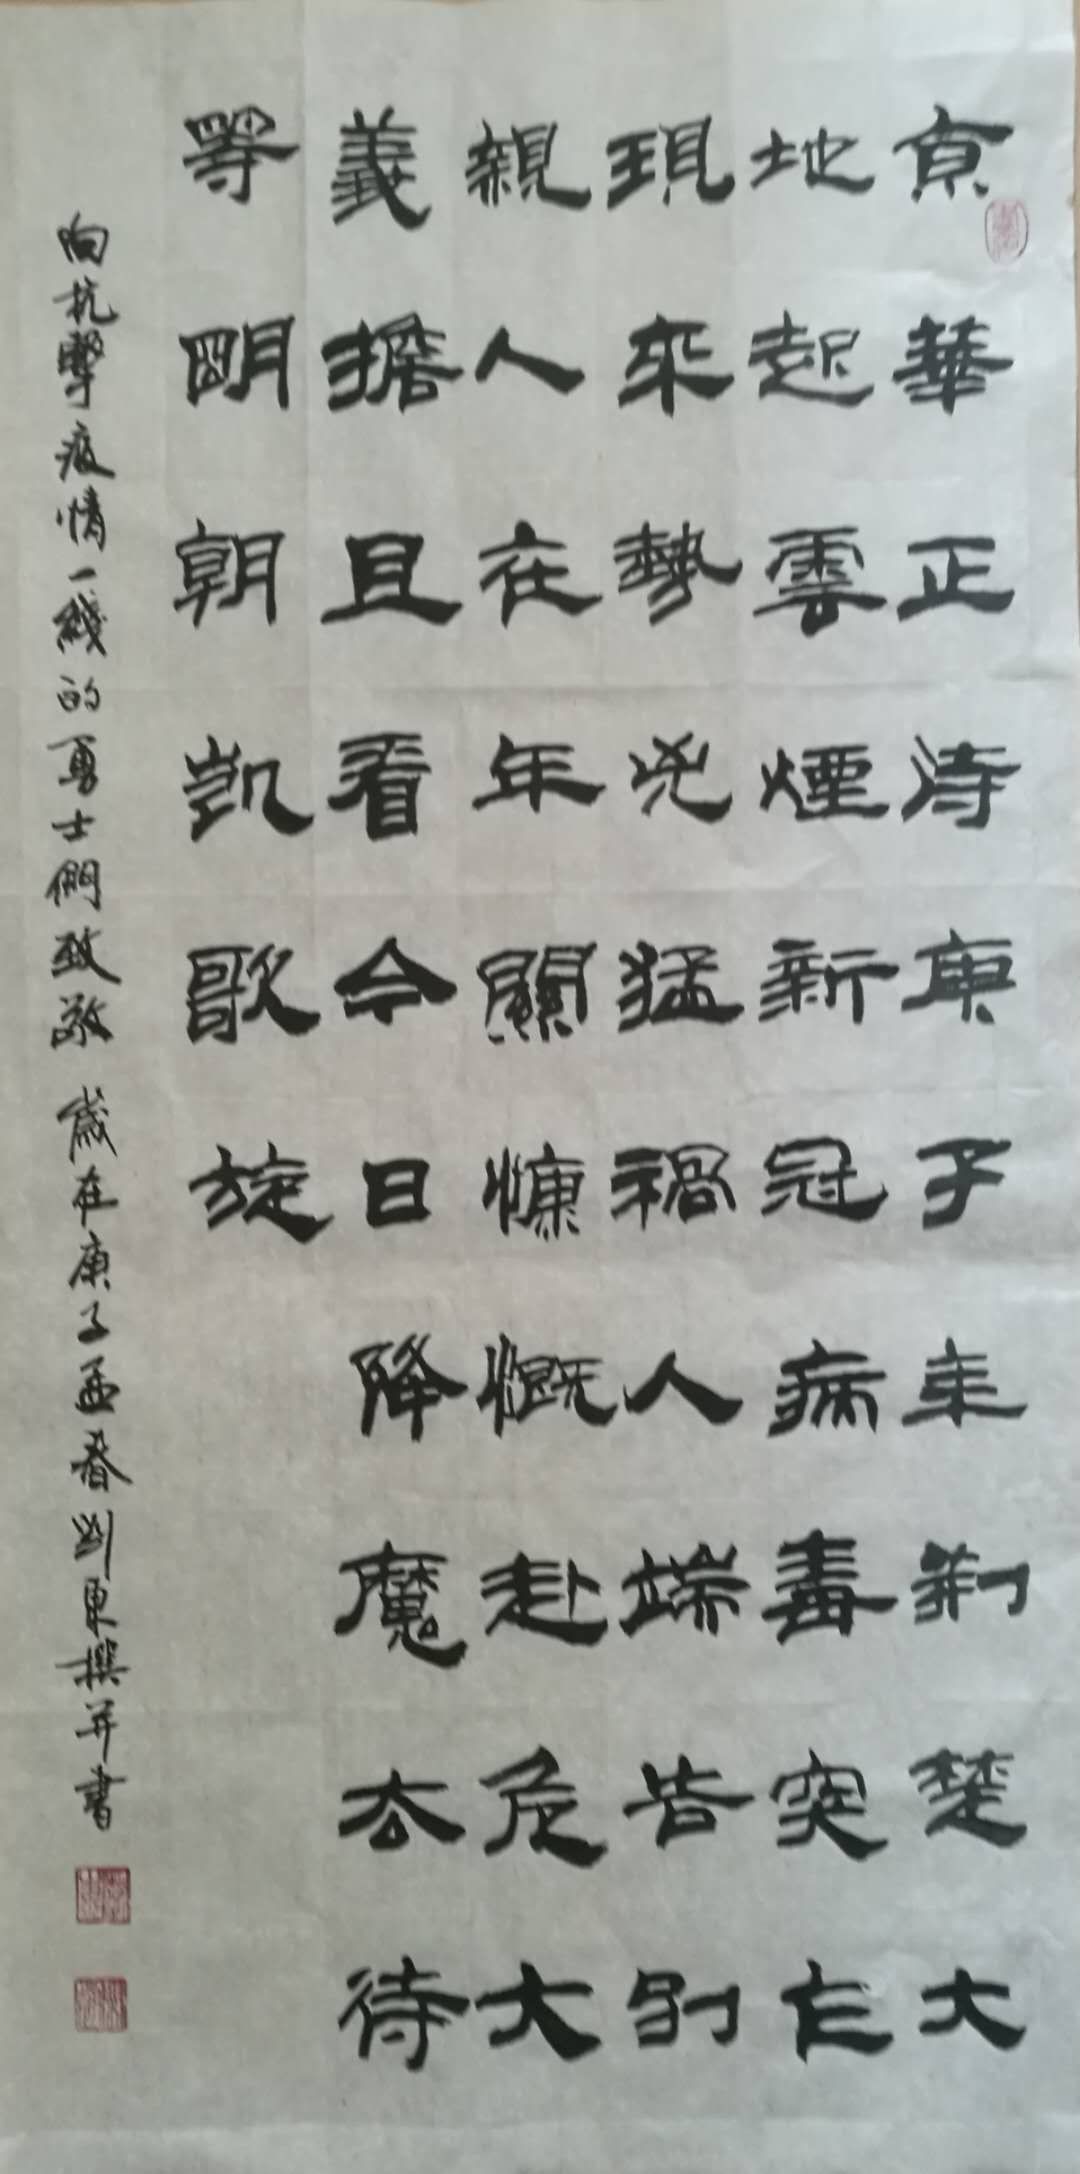 京華正待庚子年荊楚大
地起雲煙新冠病毒突乍
現來勢兇猛禍人端皆別
親人在年關慷慨赴危大
義擔且看今日降魔去待
等明朝凱歌旋
向抗擊疫情一綫的勇士們致敬 歲在庚子孟春劉東撰并書